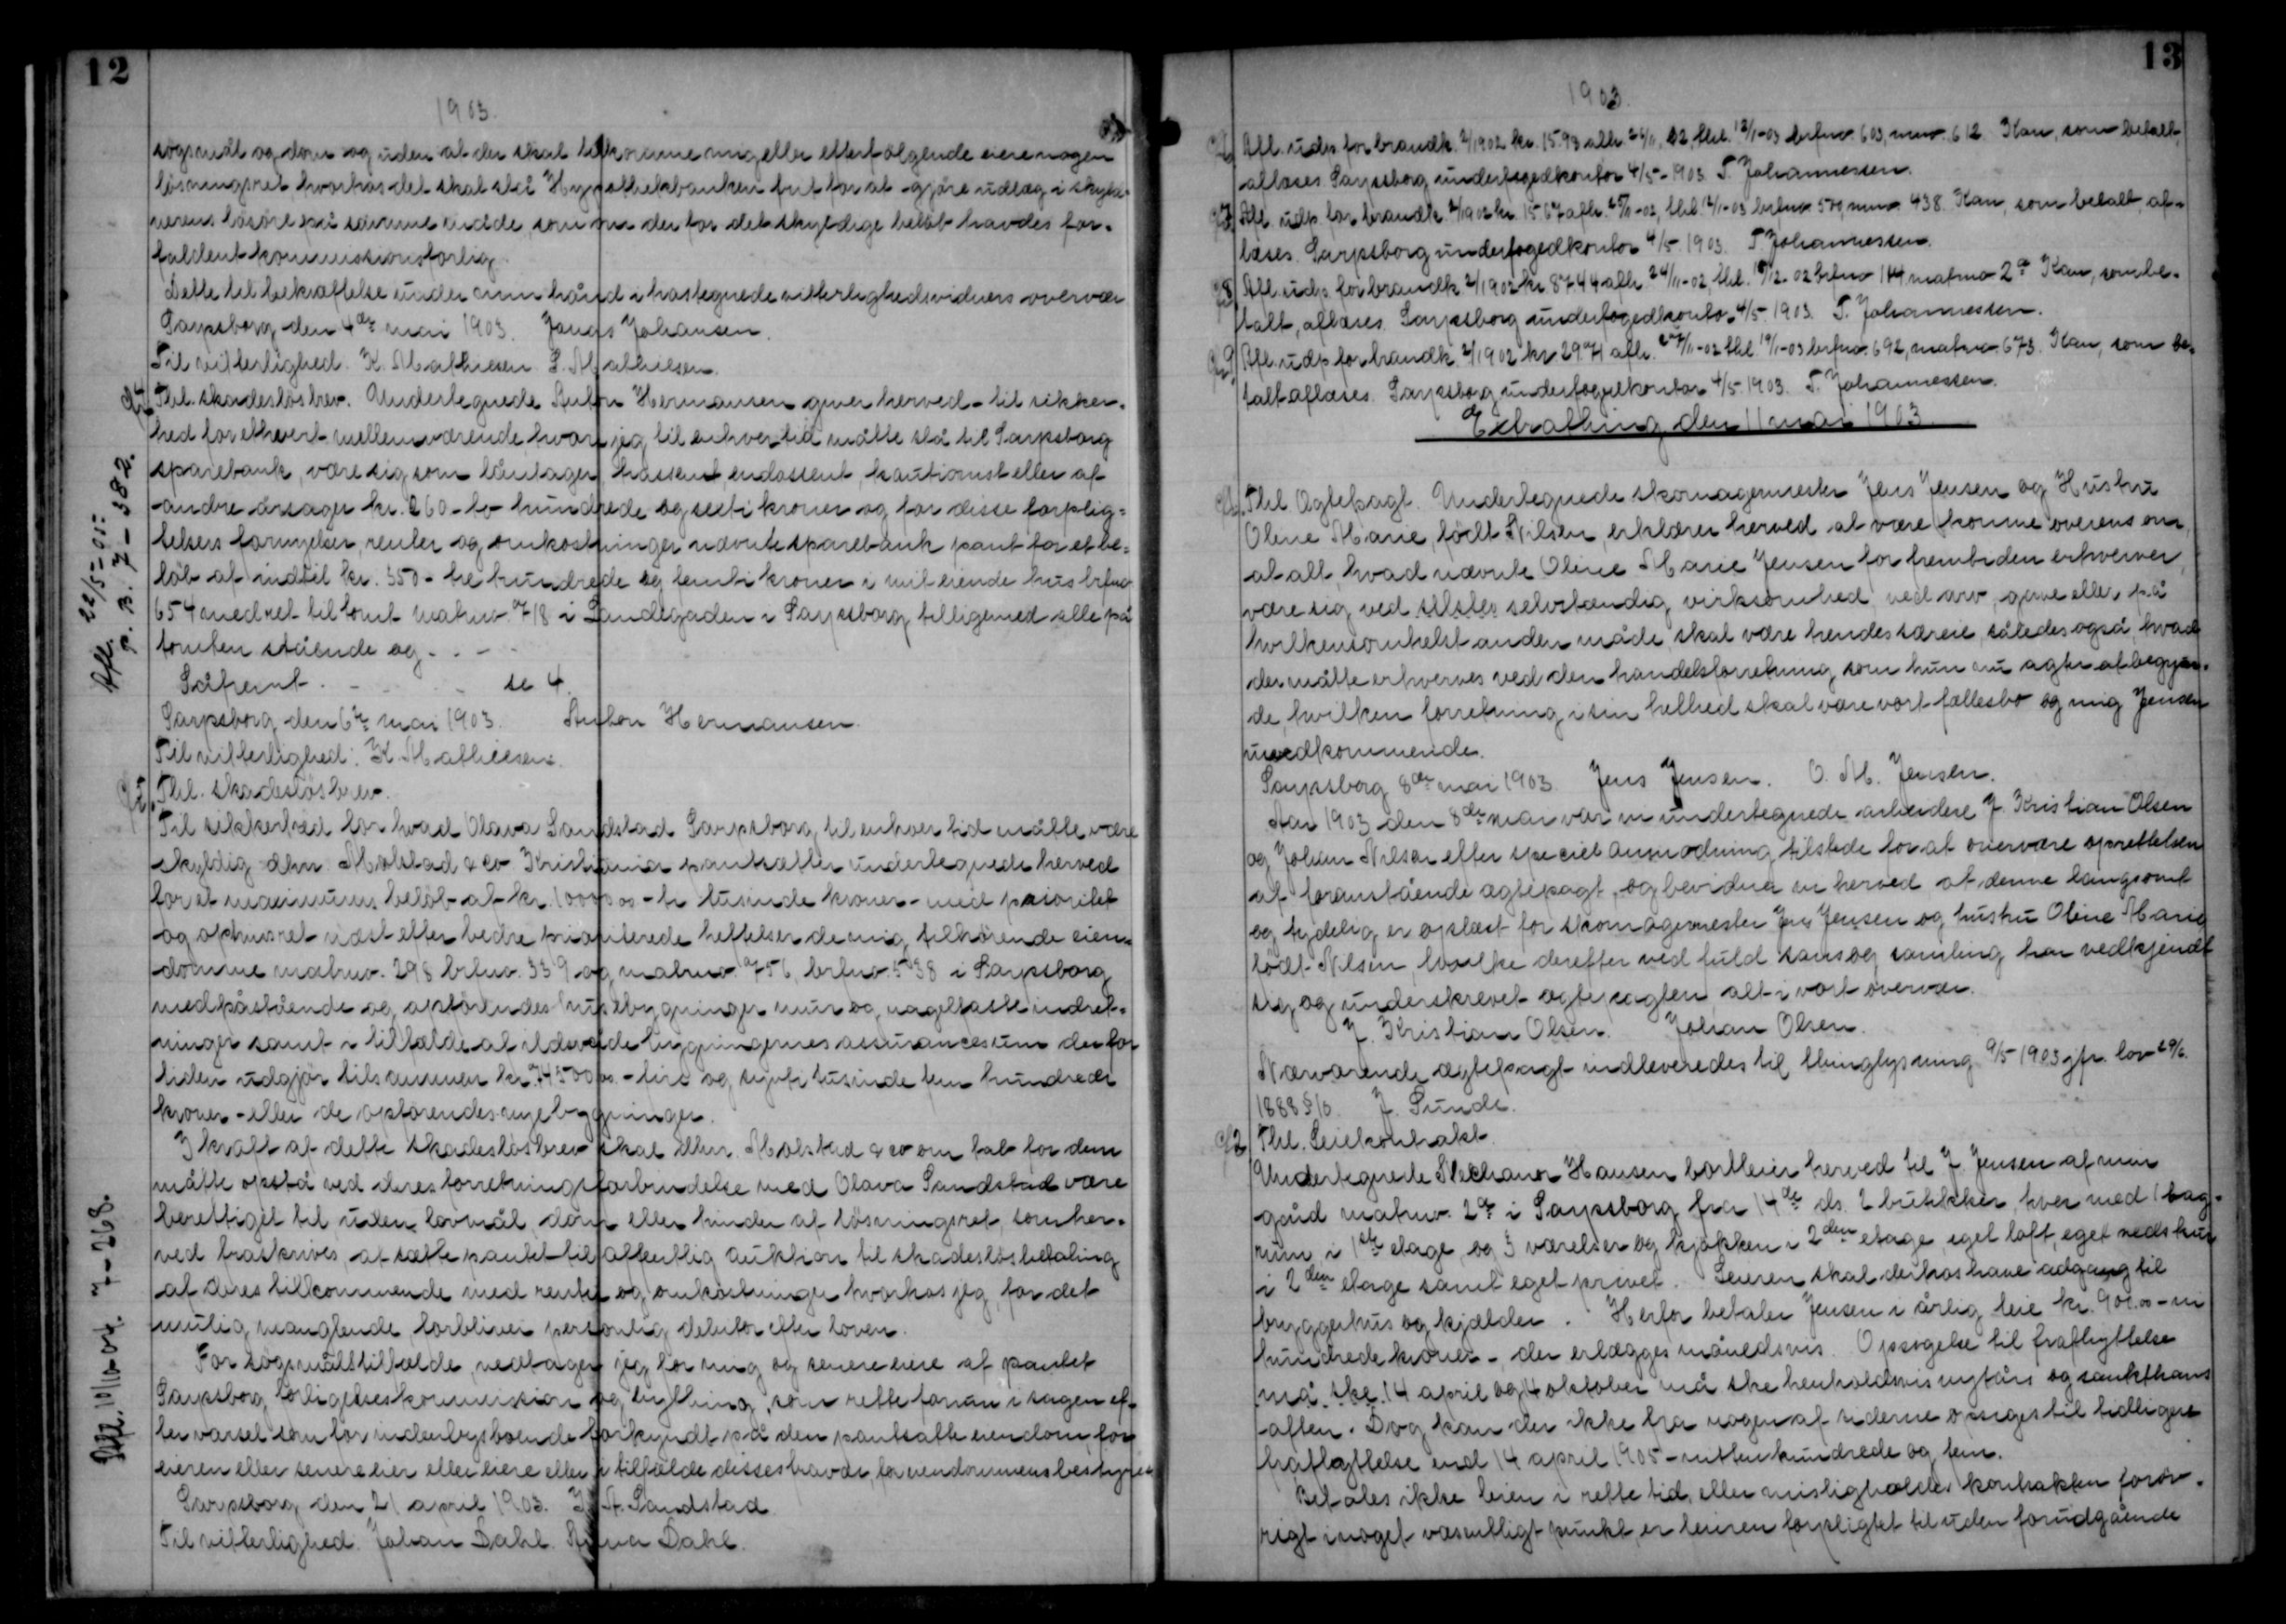 12
1903.
søgsmål og dom og uden at der skal tilkomme mig eller efterfølgende eiere nogen
løsningsret, hvorhos det skal stå Hypothekbanken frit for at gjøre udlæg i skyld-
nerens løsøre på samme måde, som om der for det skyldige beløb havdes for-
faldent kommissionsforlig.
Dette til bekræftelse under min hånd i hostegnede vitterlighedsvidners overvær
Sarpsborg den 4de mai 1903. Johansen.
Til vitterlighed: K. Mathiesen. S. Mathiesen.
Afl. 22/5-05.
p. B. 7-382.
Thl. skadesløsbrev. Undertegnede Anton Hermansen giver herved – til sikker-
hed for ethvert mellemværende, hvori jeg til enhver tid måtte stå til Sarpsborg
sparebank, være sig som låntager, trassent, endossent, kautionist eller af
andre årsager kr. 260 – to hundrede og seksti kroner og for disse forplig-
telsers fornyelser, renter og omkostninger nævnte sparebank pant for et be-
løb af indtil kr. 350 – tre hundrede og femti kroner i mit eiende hus brfno
654 med ret til tomt matrno. 718 i Sandegaden i Sarpsborg tilligemed alle på
tomten stående og . . –
Såfremt . – . . . – se 4.
Sarpsborg den 6te mai 1903. Anton Hermansen.
Til vitterlighed: K. Mathiesen.
5. Thl. skadesløsbrev.
Til sikkerhed for hvad Olava Sandstad Sarpsborg til enhver tid måtte være
skyldig dhrr Mølstad & co Kristiania pantsætter undertegnede herved
for et maximums beløb af kr. 10000.00 – ti tusinde kroner – med prioritet
og opkursret næst efter bedre prioriterede heftelser de mig tilhørende eien-
domme matrno. 298 brfno. 339 og matrno. 756, brfno. 538 i Sarpsborg
med påstående og opførendes husebygninger mur og nagelfaste indret-
ninger samt i tilfælde af ildsvåde bygningernes assurancesum der for
tiden udgjør tilsammen kr. 74500.00 – fire og sytti tusinde fem hundrede
kroner – eller de opførendes nye bygninger.
I kraft af dette skadesløsbrev skal dhrr. Mølstad & co om tab for dem
måtte opstå ved deres forretningsforbindelse med Olava Sandstad være
berettiget til uden lovmål dom eller hinder af løsningsret, som her-
ved fraskrives, at sætte pantet til offentlig auktion til skadesløsbetaling
af deres tilkommende med renter og omkostninger hvorhos jeg, for det
mulig manglende, forbliver personlig debitor efter loven.
Afl. 10/10-04. 7-268.
For søgsmålstilfælde, vedtager jeg for mig og senere eiere af pantet
Sarpsborg forligelseskommission og bything, som rette forum i sagen ef-
ter varsel som for indenbysboende forkyndt på den pantsatte eiendom, for
eieren eller senere eier eller eiere eller i tilfælde disses fravær, for eiendommens bestyrer
Sarpsborg den 21 april 1903. A. Sandstad
Til vitterlighed: Johan Dahl. Dahl.
13
1903.
6. Afl. udp. for brandk. 2/1902 kr. 15.93 afh. 26/11 02 thl. 12/1-03 brfno. 603, mno. 612. Kan, som betalt,
aflæses. Sarpsborg underfogedkontor 4/5-1903. T. Johannessen.
7. Afl. udp. for brandk. 2/1902 kr. 15.67 afh. 25/11-02, thl. 12/1-03 brfno 509, mno. 438. Kan, som betalt, af-
læses. Sarpsborg underfogedkontor 4/5 1903. T. Johannessen.
8. Afl. udp. for brandk. 2/1902 kr. 87.44 afh. 24/11-02, thl. 12-02 brfno 144 matrno 2a Kan, som be-
talt, aflæses. Sarpsborg underfogedkontor 4/5 1903. T. Johannessen.
9. Afl. udp. for brandk. 2/1902 kr. 29.71 afh. 27/11-02 thl. 12/1-03 brfno. 692, matrno. 673. Kan, som be-
talt aflæses. Sarpsborg underfogedkontor 4/5 1903. T. Johannessen.
Extrathing den 11 mai 1903.
1. Thl. Ægtepagt. Undertegnede skomagermester Jens Jensen og Hustru
Oline Marie, født Nilsen, erklærer herved at være komne overens om,
at alt, hvad nævnte Oline Marie Jensen for fremtiden erhverver,
være sig ved selvstændig virksomhed, ved arv, gave eller på
hvilkensomhelst anden måde, skal være hendes særeie, således også, hvad
der måtte erhverves ved den handelsforretning, som hun nu agter at begyn-
de, hvilken forretning i sin helhed skal være vort fællesbo og mig Jensen
uvedkommende.
Sarpsborg 8de mai 1903. Jens Jensen. O. M. Jensen.
Aar 1903 den 8de mai var vi undertegnede arbeidere J. Kristian Olsen
og Johan Nilsen efter speciel anmodning tilstede for at overvære oprettelsen
af foranstående ægtepagt, og bevidner vi herved at denne langsomt
og tydelig er oplæst for skomagermester Jens Jensen og hustru Oline Marie
født Nilsen, hvilke derefter ved fuld sans og samling har vedkjendt
sig og underskrevet ægtepagten, alt i vort overvær.
J. Kristian Olsen. Johan Olsen.
Nærværende ægtepagt indleveredes til thinglysning 9/5 1903 jfr. lov 29/6
1888 § 10. J. Sunde.
2. Thl. Leiekontrakt.
Undertegnede Hansen bortleier herved til J. Jensen af min
gård matrno. 2a i Sarpsborg fra 14de ds. 2 butikker, hver med 1 bag-
rum i 1ste etage, og 3 værelser og kjøkken i 2den etage, eget loft, eget vedskur
i 2den etage samt eget privet. Leieren skal derhos have adgang til
bryggerhus og kjælder. Herfor betaler Jensen i årlig leie kr. 900.00 – ni
hundrede kroner –, der erlægges månedsvis. Opsigelse til fraflyttelse
må ske 14 april og 14 oktober må ske henholdsvis nytårs og sankthans
aften. Dog kan der ikke fra nogen af siderne opsiges til tidligere
fraflyttelse end 14 april 1905 – nittenhundrede og fem.
Betales ikke leien i rette tid, eller misligholdes kontrakten forøv-
rigt i noget væsentligt punkt, er leieren forpligtet til uden forudgående